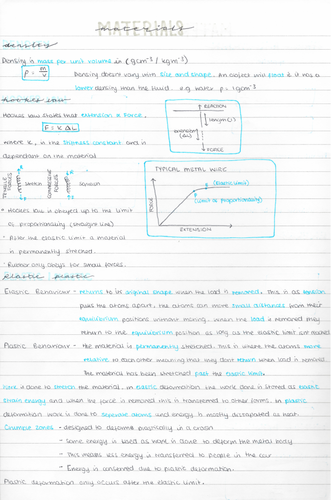 MATERIALS
materials
density
Density is mass per unit volume in (gcm⁻³ / kgm⁻³)
ρ = m/v
Density doesn't vary with size and shape. An object will float if it has a
lower density than the fluid. e.g. water ρ = 1gcm⁻³
hookes law
Hookes law states that extension ∝ Force.
F = k ΔL
where k, is the stiffness constant and is
dependant on the material
REACTION
length (L)
extension (ΔL)
FORCE
TENSILE FORCES
stretch
COMPRESSIVE FORCES
squash
TYPICAL METAL WIRE
FORCE
(elastic limit)
(limit of proportionality)
EXTENSION
- Hookes law is obeyed up to the limit
of proportionality (straight line)
- After the elastic limit a material
is permanently stretched.
- Rubber only obeys for small forces.
elastic plastic
Elastic Behaviour - returns to its original shape when the load is removed. This is as tension
pulls the atoms apart. The atoms can move small distances from their
equilibrium positions without moving. When the load is removed they
return to the equilibrium position as long as the elastic limit isn't reached
Plastic Behaviour - the material is permanently stretched. This is where the atoms move
relative to each other meaning that they don't return when load is removed.
The material has been stretched past the elastic limit.
Work is done to stretch the material. In elastic deformation the work done is stored as elastic
strain energy and when the force is removed this is transferred to other forms. In plastic
deformation work is done to seperate atoms and energy is mostly dissipated as heat.
Crumple zones - designed to deform plastically in a crash
- Some energy is used as work is done to deform the metal body
- This means less energy is transferred to people in the car
- Energy is conserved due to plastic deformation.
Plastic deformation only occurs after the elastic limit.